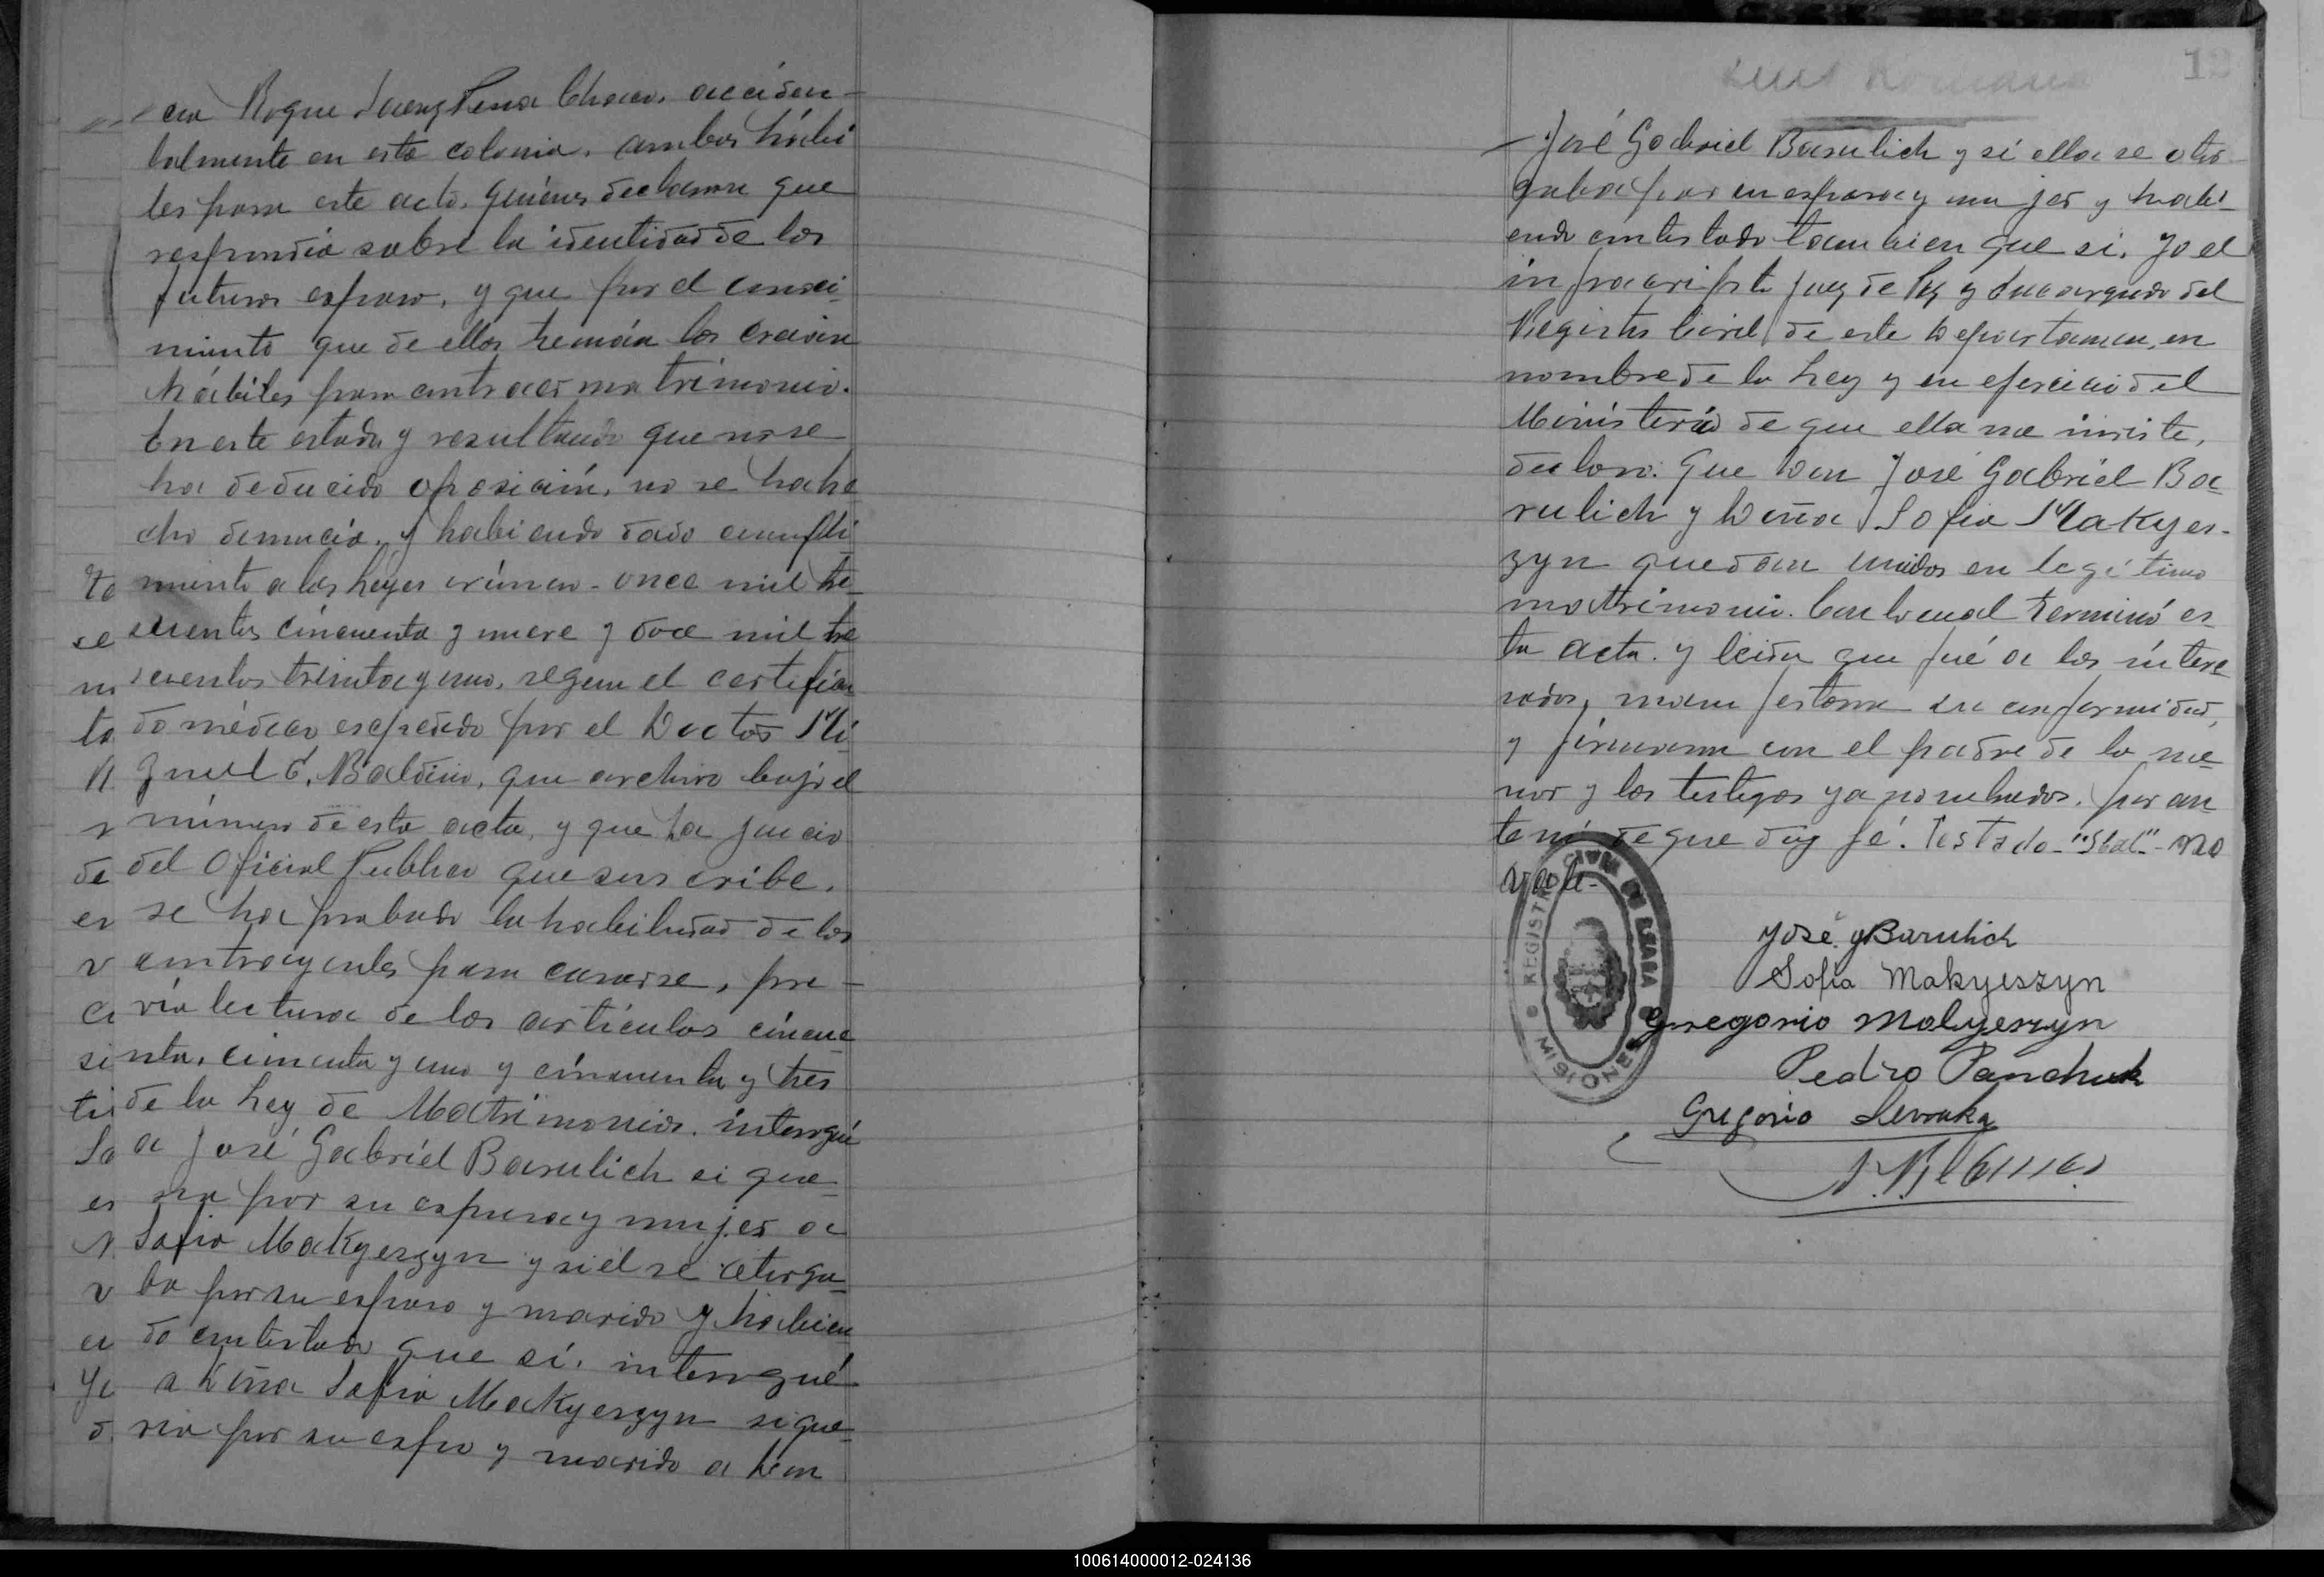 cia Roque Saenz Pena Chaco. acciden-
talmente en esta colonia. ambos hábi
les para este acto. quienes declaran que
respondia sobre la identidad de los
futuros esposo, y que por el conoci-
miento que de ellos tenián los creian
hábiles para contraer matrimonio.
En este estado y resultando que no se
ha deducido oposición, no se ha he
cho denuncia, y habiendo dado cumpli-
miento a las Leyes número once mil tre-
scientos cincuenta y nueve y doce mil tre
scientos treinta y uno, segun el certifica
do médico expedido por el Doctor Mi
guel C. Baldino, que archivo bajo el
número de esta acta, y que ha juicio
del Oficial Publico que suscribe.
se ha probado la habilidad de los
contrayentes para casarse, pre-
vía lectura de los artículos cincue
nta, cincuenta y uno y cincuenta y tres
de la Ley de Matrimonio. interrogué
a José Gabriél Barulich si que-
ria por su esposa y mujer a
Sofia Makyeszyn y si él se otorga-
ba por su esposo y marido y habien
do contestado que sí. interrogué
a Doña Sofia Makyeszyn si que-
ria por su espso y marido a Don
12
José Gabriel Barulich y si ella se otor-
gaba por su esposa y mujer y habi-
endo contestado tambien que si. Yo el
infrascripto Juez de Paz y Encargado del
Registro Civil de este Departamen, en
nombre de la Ley y en ejercicio del
Ministerio de que ella me inviste,
declaro: Que Don José Gabriel Ba-
rulich y Doña Sofia Makyes-
zyn quedan unidos en legítimo
matrimonio. Con lo cual terminó es
ta acta. y leida que fué a los intere
sados, manifestaron su conformidad,
y firmaron con el padre de la me-
nor y los testigos ya nombrados. por an
te mi de que doy fé. Testado- "Stal"- no
vale-
REGISTRO CIVIL
MISIONES
José. g Barulich
Sofia Makyeszyn
Gregorio Makyeszyn
Pedro Panchuk
Gregorio
100614000012-024136